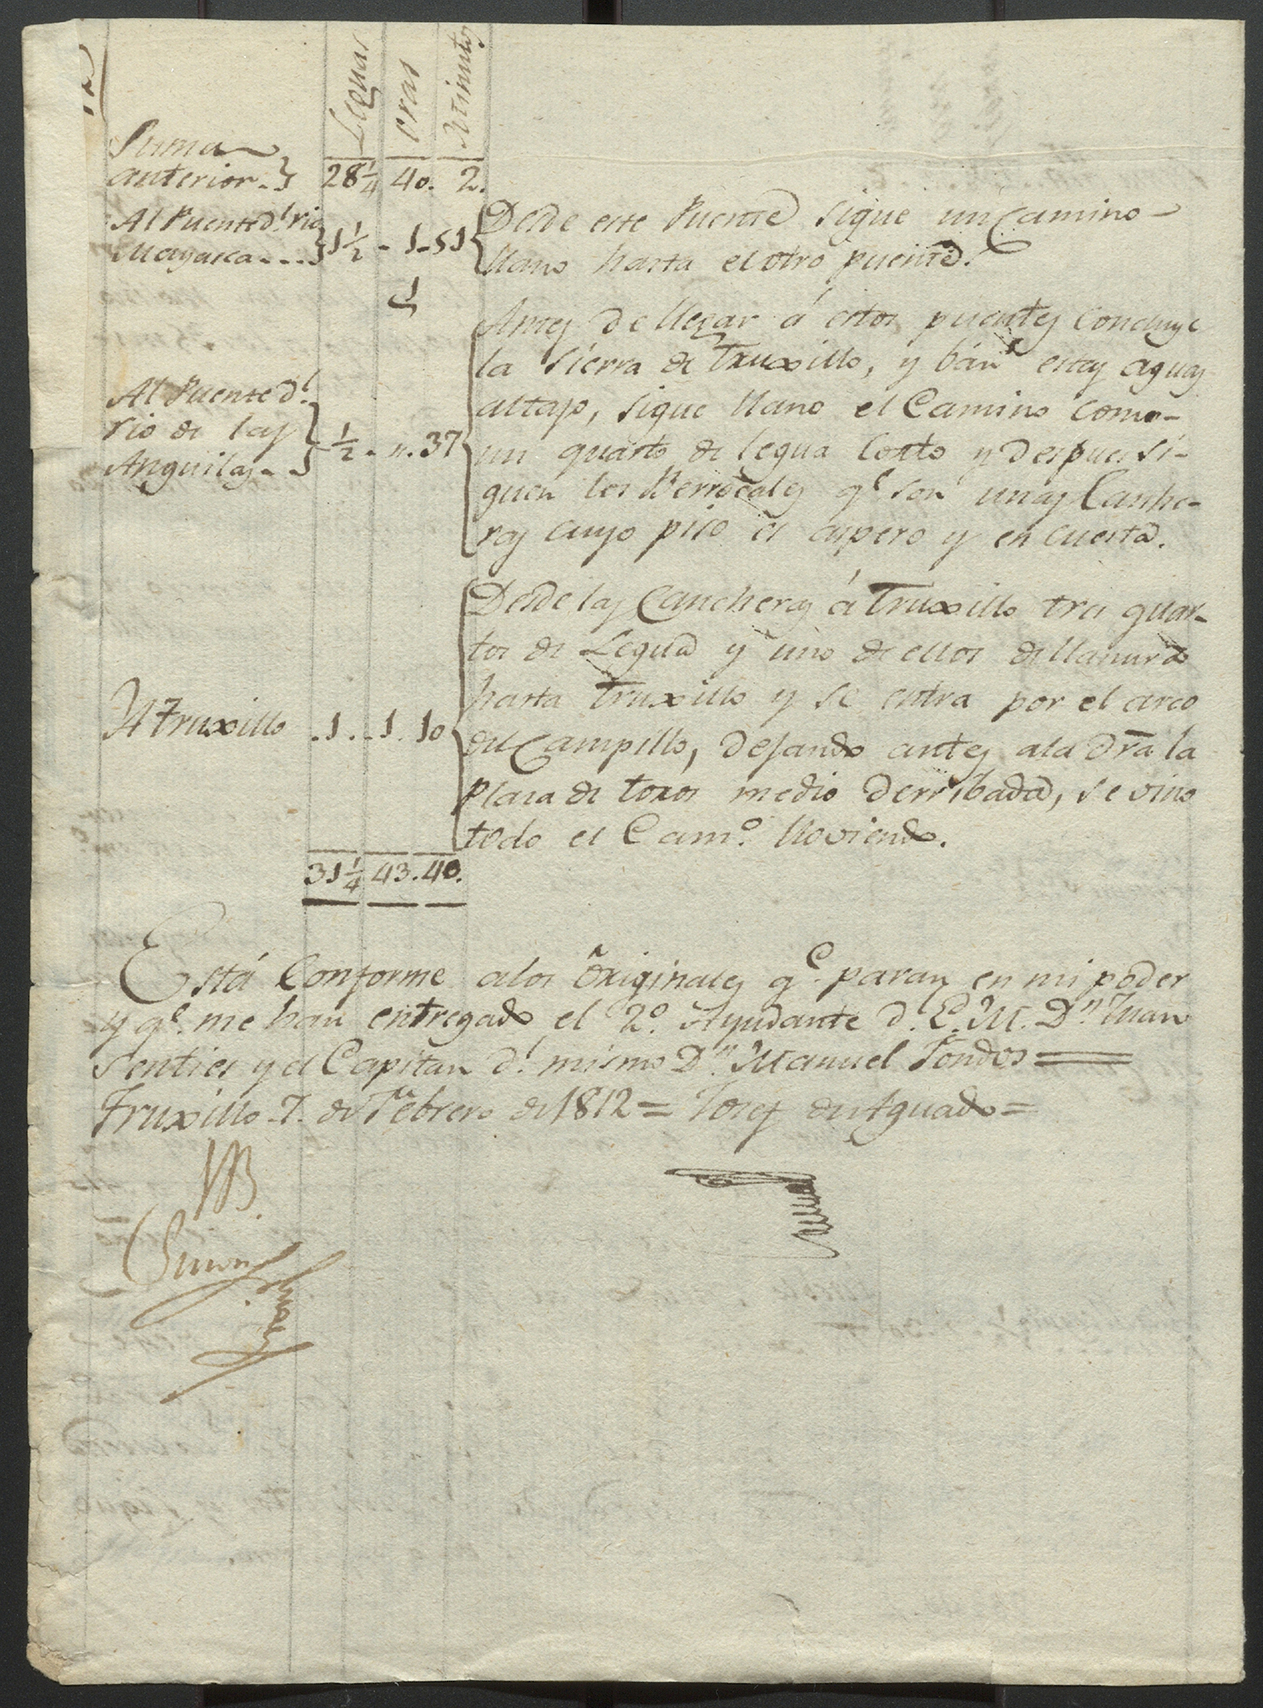 Leguas oras Minutos
Suma
anterior.. 28 1/4 40. 2.
Al Puente d.l rio
Magasca... 1 1/2 - 1 - 51
Desde este Puente sigue un Camino
llano hasta el otro puente.
Al Puente d.l
rio de las
Anguilas.. 1/2 - ,, . 37
Antes de llegar á estos puentes Concluye
la Sierra de Truxillo, y bán estas aguas
altajo, sigue llano el Camino como
un quarto de legua Corto y despues si-
guen los Berrocales q.e son unas Canche-
ras cuyo piso es aspero y en cuesta.
A Truxillo . 1 . . 1 . 10
Desde las Cancheras á Truxillo tres quar-
tos de Legua y uno de ellos de llanura
hasta Truxillo y se entra por el arco
del Campillo, dejando antes ala dra la
Plaza de toros medio derribada, se vino
todo el Cam.o lloviendo.
31 1/4 43. 40.
Está Conforme alos originales q.e paran en mi poder
y q.e me han entregado el 2.o Ayudante d.l E. M. D.n Juan
Senties y el Capitan d.l mismo D.n Manuel Fondos =
Truxillo 7. de Febrero de 1812 = Josef de Aguado =
VB.